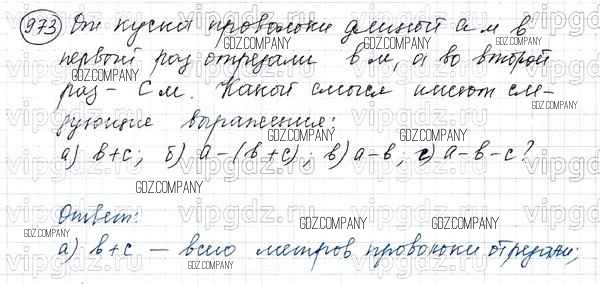 973 От куска проволоки длиной а м в
первый раз отрезали в м, а во второй
раз - с м. Какой смысл имеют сле-
дующие выражения:
а) в+с; б) а-(в+с); в) а-в; г) а-в-с?
Ответ:
а) в+с — всего метров проволоки отрезали;
GDZ.COMPANY
vipgdz.ru